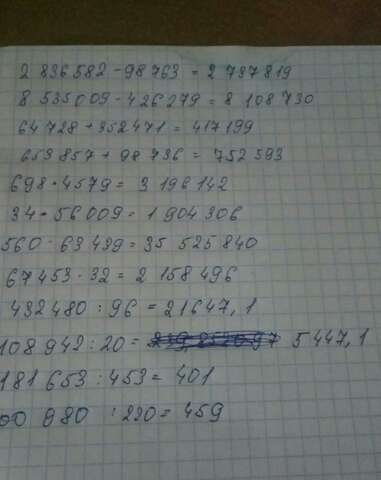 2 836582 - 98763 = 2 737819
8 535009 - 426279 = 8 108 730
64 728 + 352471 = 417199
653857 + 98 736 = 752 593
698 · 4579 = 3 196 142
34 · 56 009 = 1 904 306
560 · 63 439 = 35 525 840
67 453 · 32 = 2 158 496
432480 : 96 = 21647,1
108 942 : 20 = 5447,1
181 653 : 453 = 401
00 980 : 220 = 459